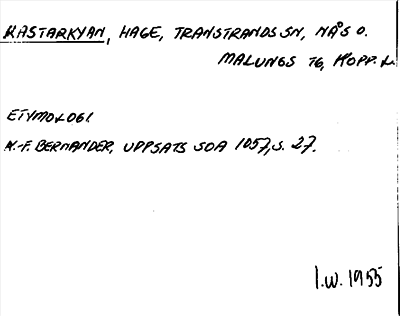 KASTARKYAN, HAGE, TRANSTRANDS SN, NÅS O.
MALUNGS TG, KOPP. L.
ETYMOLOGI
K.-F. BERNANDER, UPPSATS SOA 1057, S. 27.
I.W. 1955